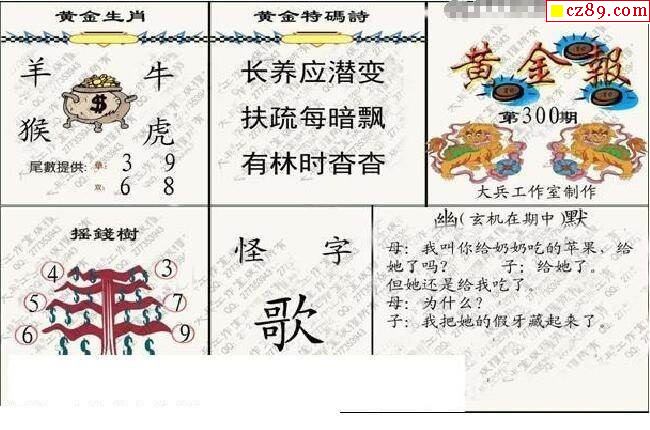 cz89.com
黄金生肖
羊 牛
猴 虎
$
尾數提供: 单: 3 9
双: 6 8
黄金特碼詩
长养应潜变
扶疏每暗飘
有林时杳杳
黄金報
第300期
大兵工作室制作
摇錢樹
4 3
5 7
6 9
怪 字
歌
幽(玄机在期中)默
母: 我叫你给奶奶吃的苹果、给
她了吗? 子: 给她了。
但她还是给我吃了。
母: 为什么?
子: 我把她的假牙藏起来了。